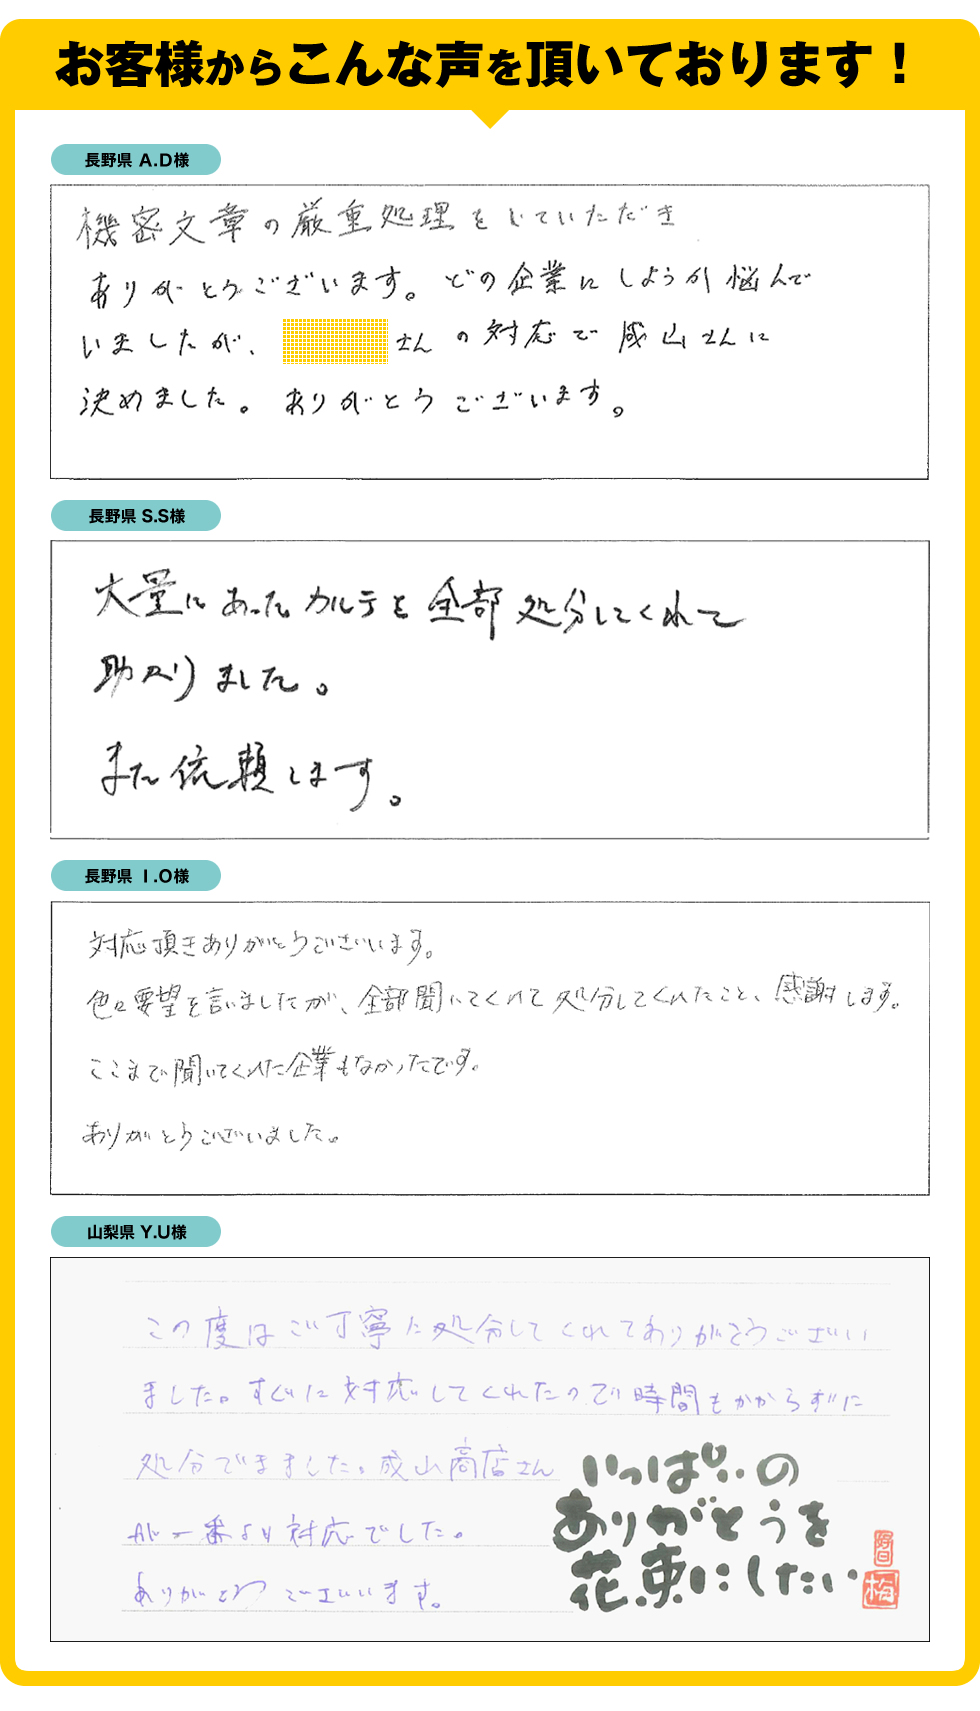 お客様からこんな声を頂いております！
長野県 A.D様
機密文章の厳重処理をしていただき
ありがとうございます。どの企業にしようか悩んで
いましたが、 さんの対応で成山さんに
決めました。ありがとうございます。
長野県 S.S様
大量にあったカルテを全部処分してくれて
助かりました。
また依頼します。
長野県 I.O様
対応頂きありがとうございます。
色々要望を言いましたが、全部聞いてくれて処分してくれたこと、感謝します。
ここまで聞いてくれた企業もなかったです。
ありがとうございました。
山梨県 Y.U様
この度はご丁寧に処分してくれてありがとうござい
ました。すぐに対応してくれたので時間もかからずに
処分できました。成山商店さん
が一番より対応でした。
ありがとうございます。
いっぱいの
ありがとうを
花束にしたい
梅